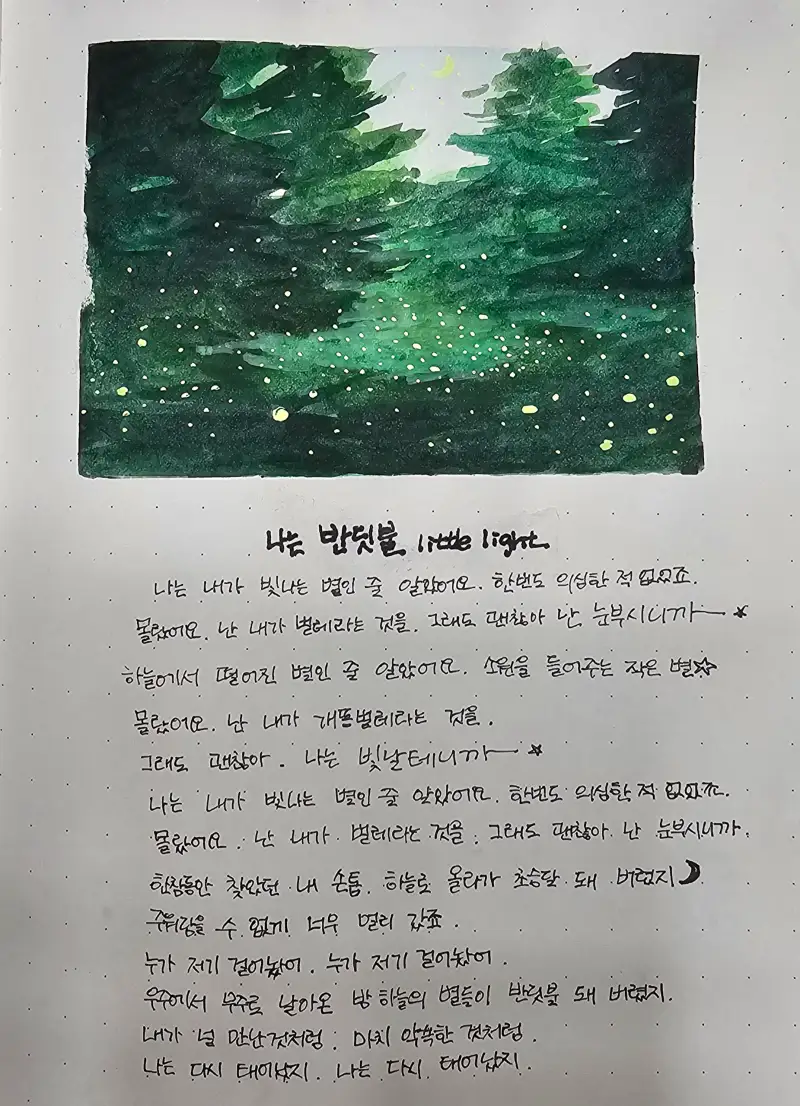 나는 반딧불 little light.
나는 내가 빛나는 별인 줄 알았어요. 한번도 의심한 적 없었죠.
몰랐어요. 난 내가 벌레라는 것을. 그래도 괜찮아 난 눈부시니까
하늘에서 떨어진 별인 줄 알았어요. 소원을 들어주는 작은 별
몰랐어요. 난 내가 개똥벌레라는 것을.
그래도 괜찮아. 나는 빛날테니까
나는 내가 빛나는 별인 줄 알았어요. 한번도 의심한 적 없었죠.
몰랐어요. 난 내가 벌레라는 것을. 그래도 괜찮아 난 눈부시니까.
한참동안 찾았던 내 손톱. 하늘로 올라가 초승달 돼 버렸지
주워담을 수 없게 너무 멀리 갔죠.
누가 저기 걸어놨어. 누가 저기 걸어놨어.
우주에서 무주로 날아온 밤하늘의 별들이 반딧불 돼 버렸지.
내가 널 만난것처럼. 마치 약속한 것처럼.
나는 다시 태어났지. 나는 다시 태어났지.